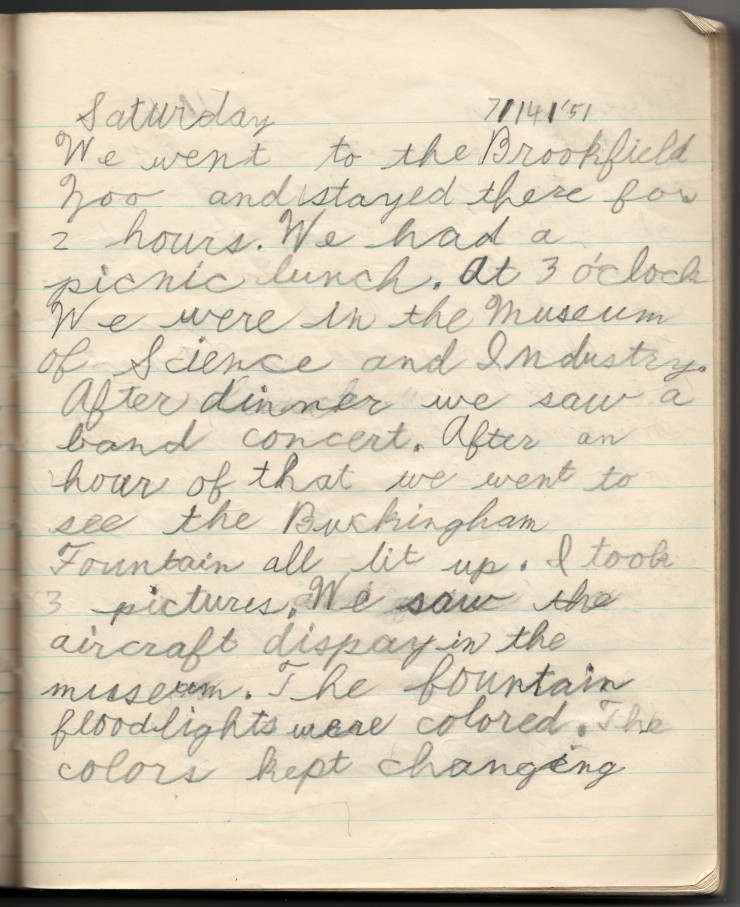 Saturday 7/14/'51
We went to the Brookfield
Zoo and stayed there for
2 hours. We had a
picnic lunch. At 3 o'clock
We were in the Museum
of Science and Industry.
After dinner we saw a
band concert. After an
hour of that we went to
see the Buckingham
Fountain all lit up. I took
3 pictures. We saw the
aircraft dispay in the
museum. The fountain
floodlights were colored. The
colors kept changing